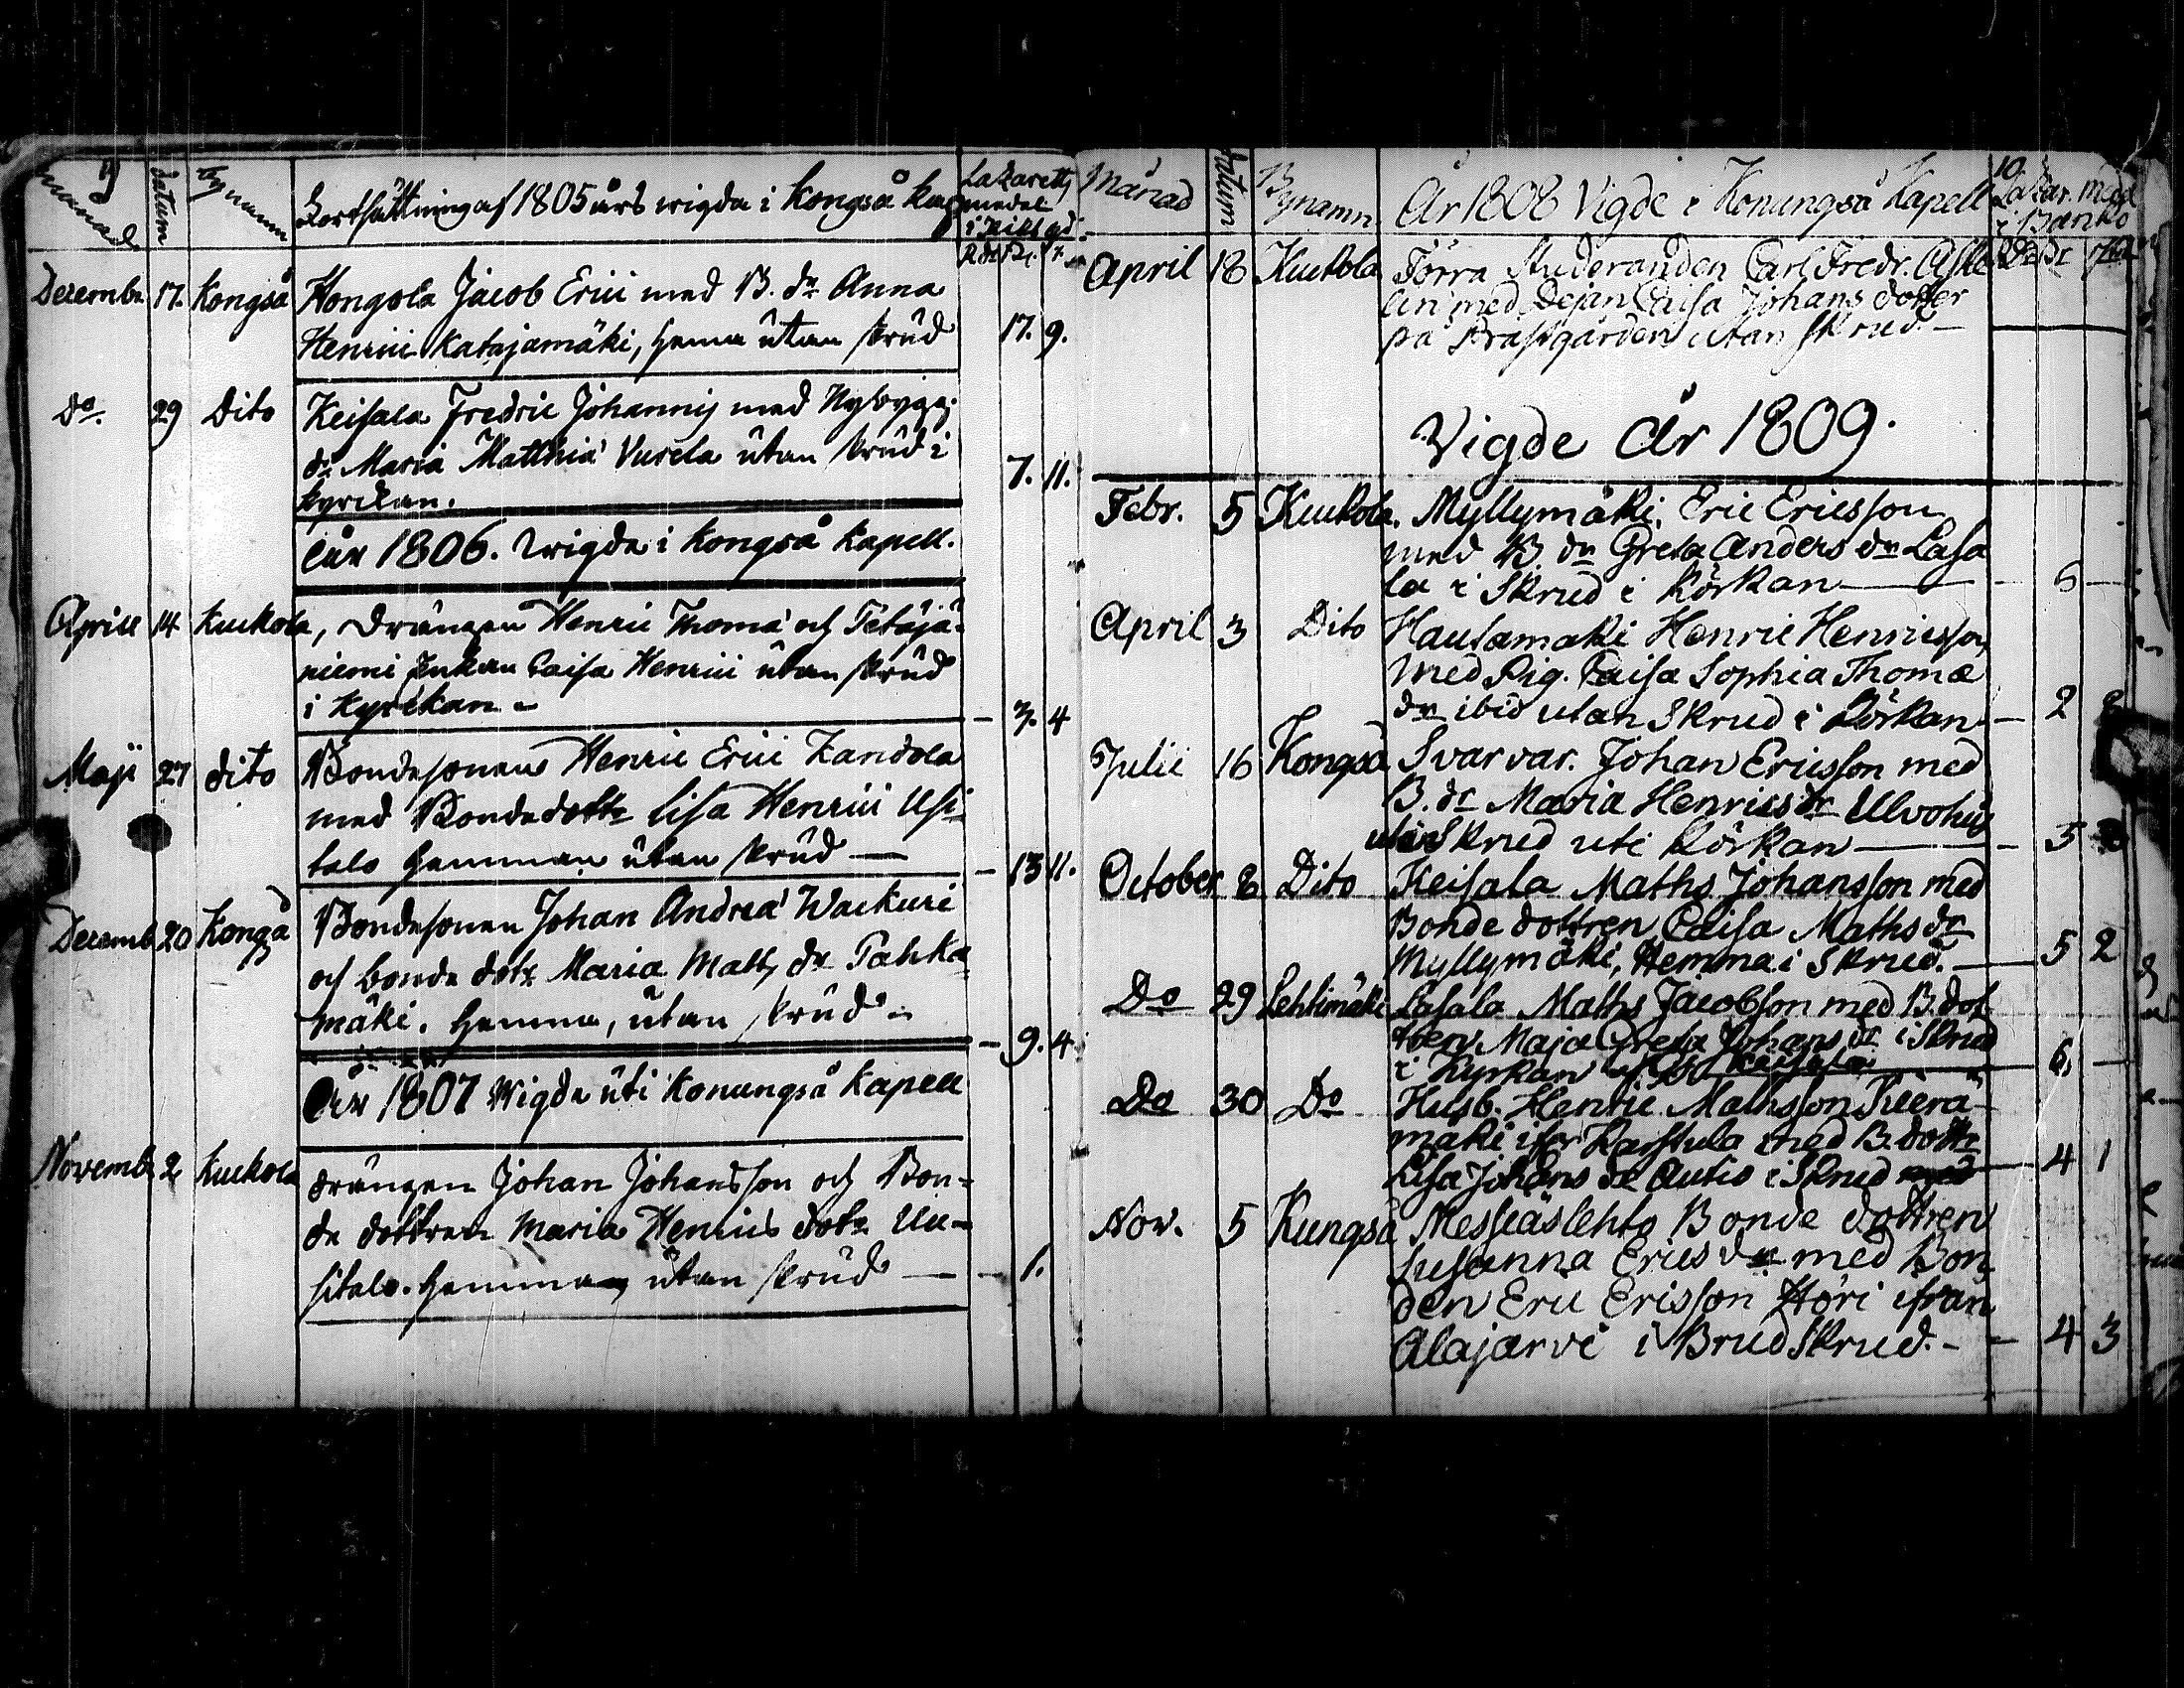 9
månad
datum
bynamn
Fortsättning af 1805 års wigda i Kongså Kap
Lazaretts
medel
i Riksgd
Rdr
Decembr 17. Kongså Hongola Jacob Erici med B. dr Anna
Henrici Katajamäki, hema utan skrud 17. 9.
Do. 29 Dito Keisala Fredric Johannis med Nybygg.
dr Maria Matthiæ Vurela utan skrud i
kyrckan. 7. 11.
Åhr 1806. Wigda i Kongså Kapell.
Aprill 14 Kuckola, Drängen Henric Thomæ och Tetäjä-
niemi Enkan Caisa Henrici utan skrud
i Kyrckan - 7. 4
Maji 27 dito Bondesonen Henric Erici Kandola
med Bonde dottr Lisa Henrici Usi-
talo hemman utan skrud — 13 11.
Decemb 20 Kongå Bondesonen Johan Andreæ Wackuri
och bonde dotr Maria Matts dr Pahka-
mäki. hemma, utan skrud - 9. 4
Åhr 1807 Wigda uti Konungså Kapell
Novemb 2 Kuckola drängen Johan Johansson och Bon-
de dottren Maria Henrics dotr Uu-
sitalo. hemma utan skrud — 1.
Månad
Datum
Bynamn.
År 1808 Vigde i Konungså Kapell
10.
Lazar. med
i Banko
April 18 Kuckola Förra Studeranden Carl Fredr. Aske
lin med Dejan Caisa Johans dotter
på Prästgården utan Skrud. —
Vigde År 1809.
Febr. 5 Kuckola. Myllymäki, Eric Ericsson
med B. dr Greta Anders dr Lasa
la i Skrud i Körkan — 6 —
April 3 Dito Hautamaki Henric Henricsson
med Pig. Caisa Sophia Thomæ
dr ibid utan Skrud i Körkan — 2
Julii 16 Kongså Svarvar. Johan Ericsson med
B. dr Maria Henrics dr Ulvohus
utan Skrud uti Körkan — 5
October 8 Dito Keisala Maths Johansson med
Bonde dottren Caisa Maths dr
Myllymäki, Hemma i Skrud. — 5 2
Do 29 Lehtimäki Lasala Maths Jacobsson med B. dot
tren Maja Greta Johans dr i Skrud
i Kyrkan Keisala 6 —
Do 30 Do Husb. Henric Mathsson Kiverä-
mäki ifr Karstula med B. dottr
Lisa Johans dr Autio i Skrud 4 1
Nov. 5 Kungså Messiäslehto Bonde dottren
Susanna Erics dr med Bon
den Eric Erisson Höri ifrån
Alajarvi i Brud Skrud. - 4 3